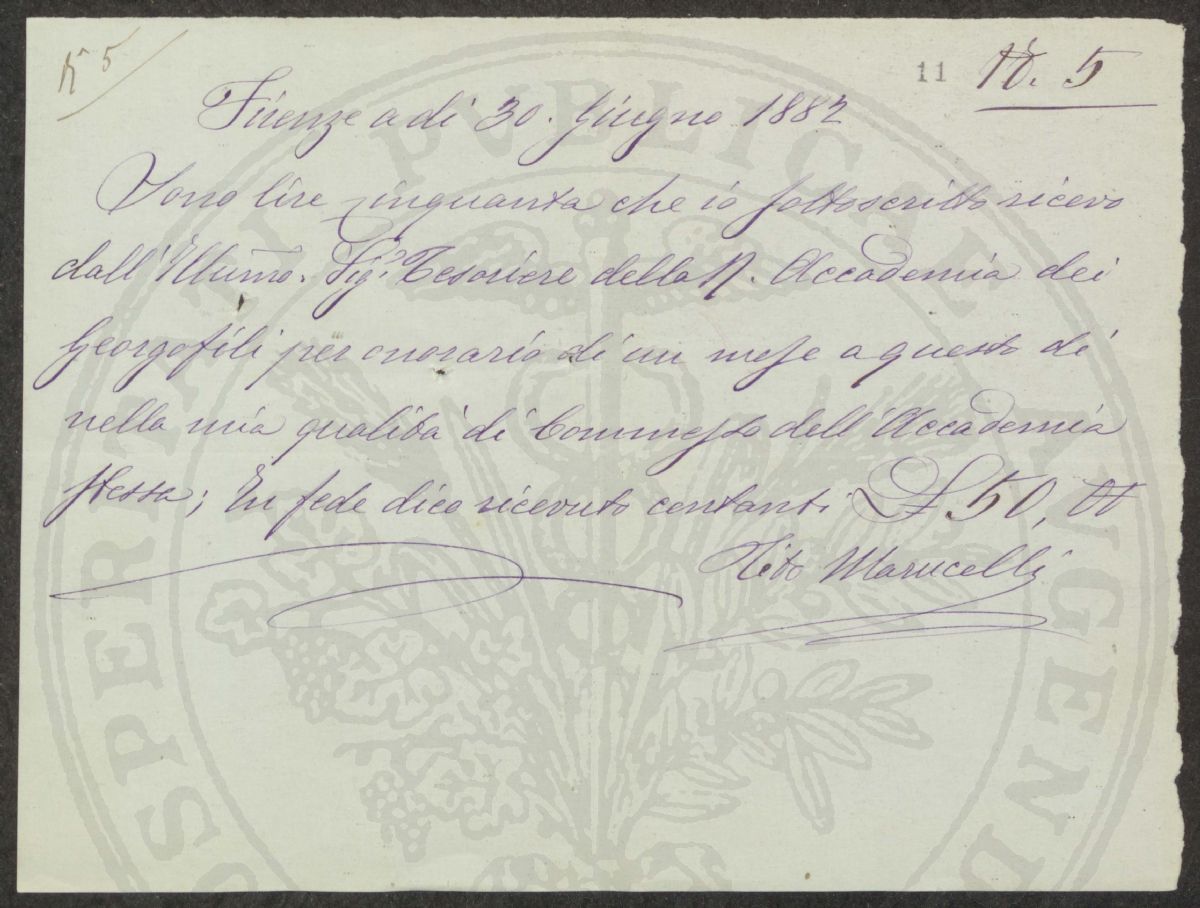 N 5
11 N. 5
Firenze a dì 30. Giugno 1882
Sono lire cinquanta che io sottoscritto ricevo
dall' Illumo. Sigr. Tesoriere della R. Accademia dei
Georgofili per onorario di un mese a questo dì
nella mia qualità di Commesso dell' Accademia
stessa; In fede dico ricevuto contanti £ 50, 00
Tito Marucelli
PROSPERITATI PVBLICAE AVGENDAE